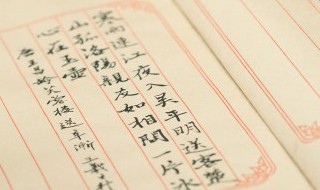 寒雨連江夜入吴平明送客楚
山孤洛陽親友如相問一片冰
心在玉壺
唐王昌齡芙蓉樓送辛漸 義